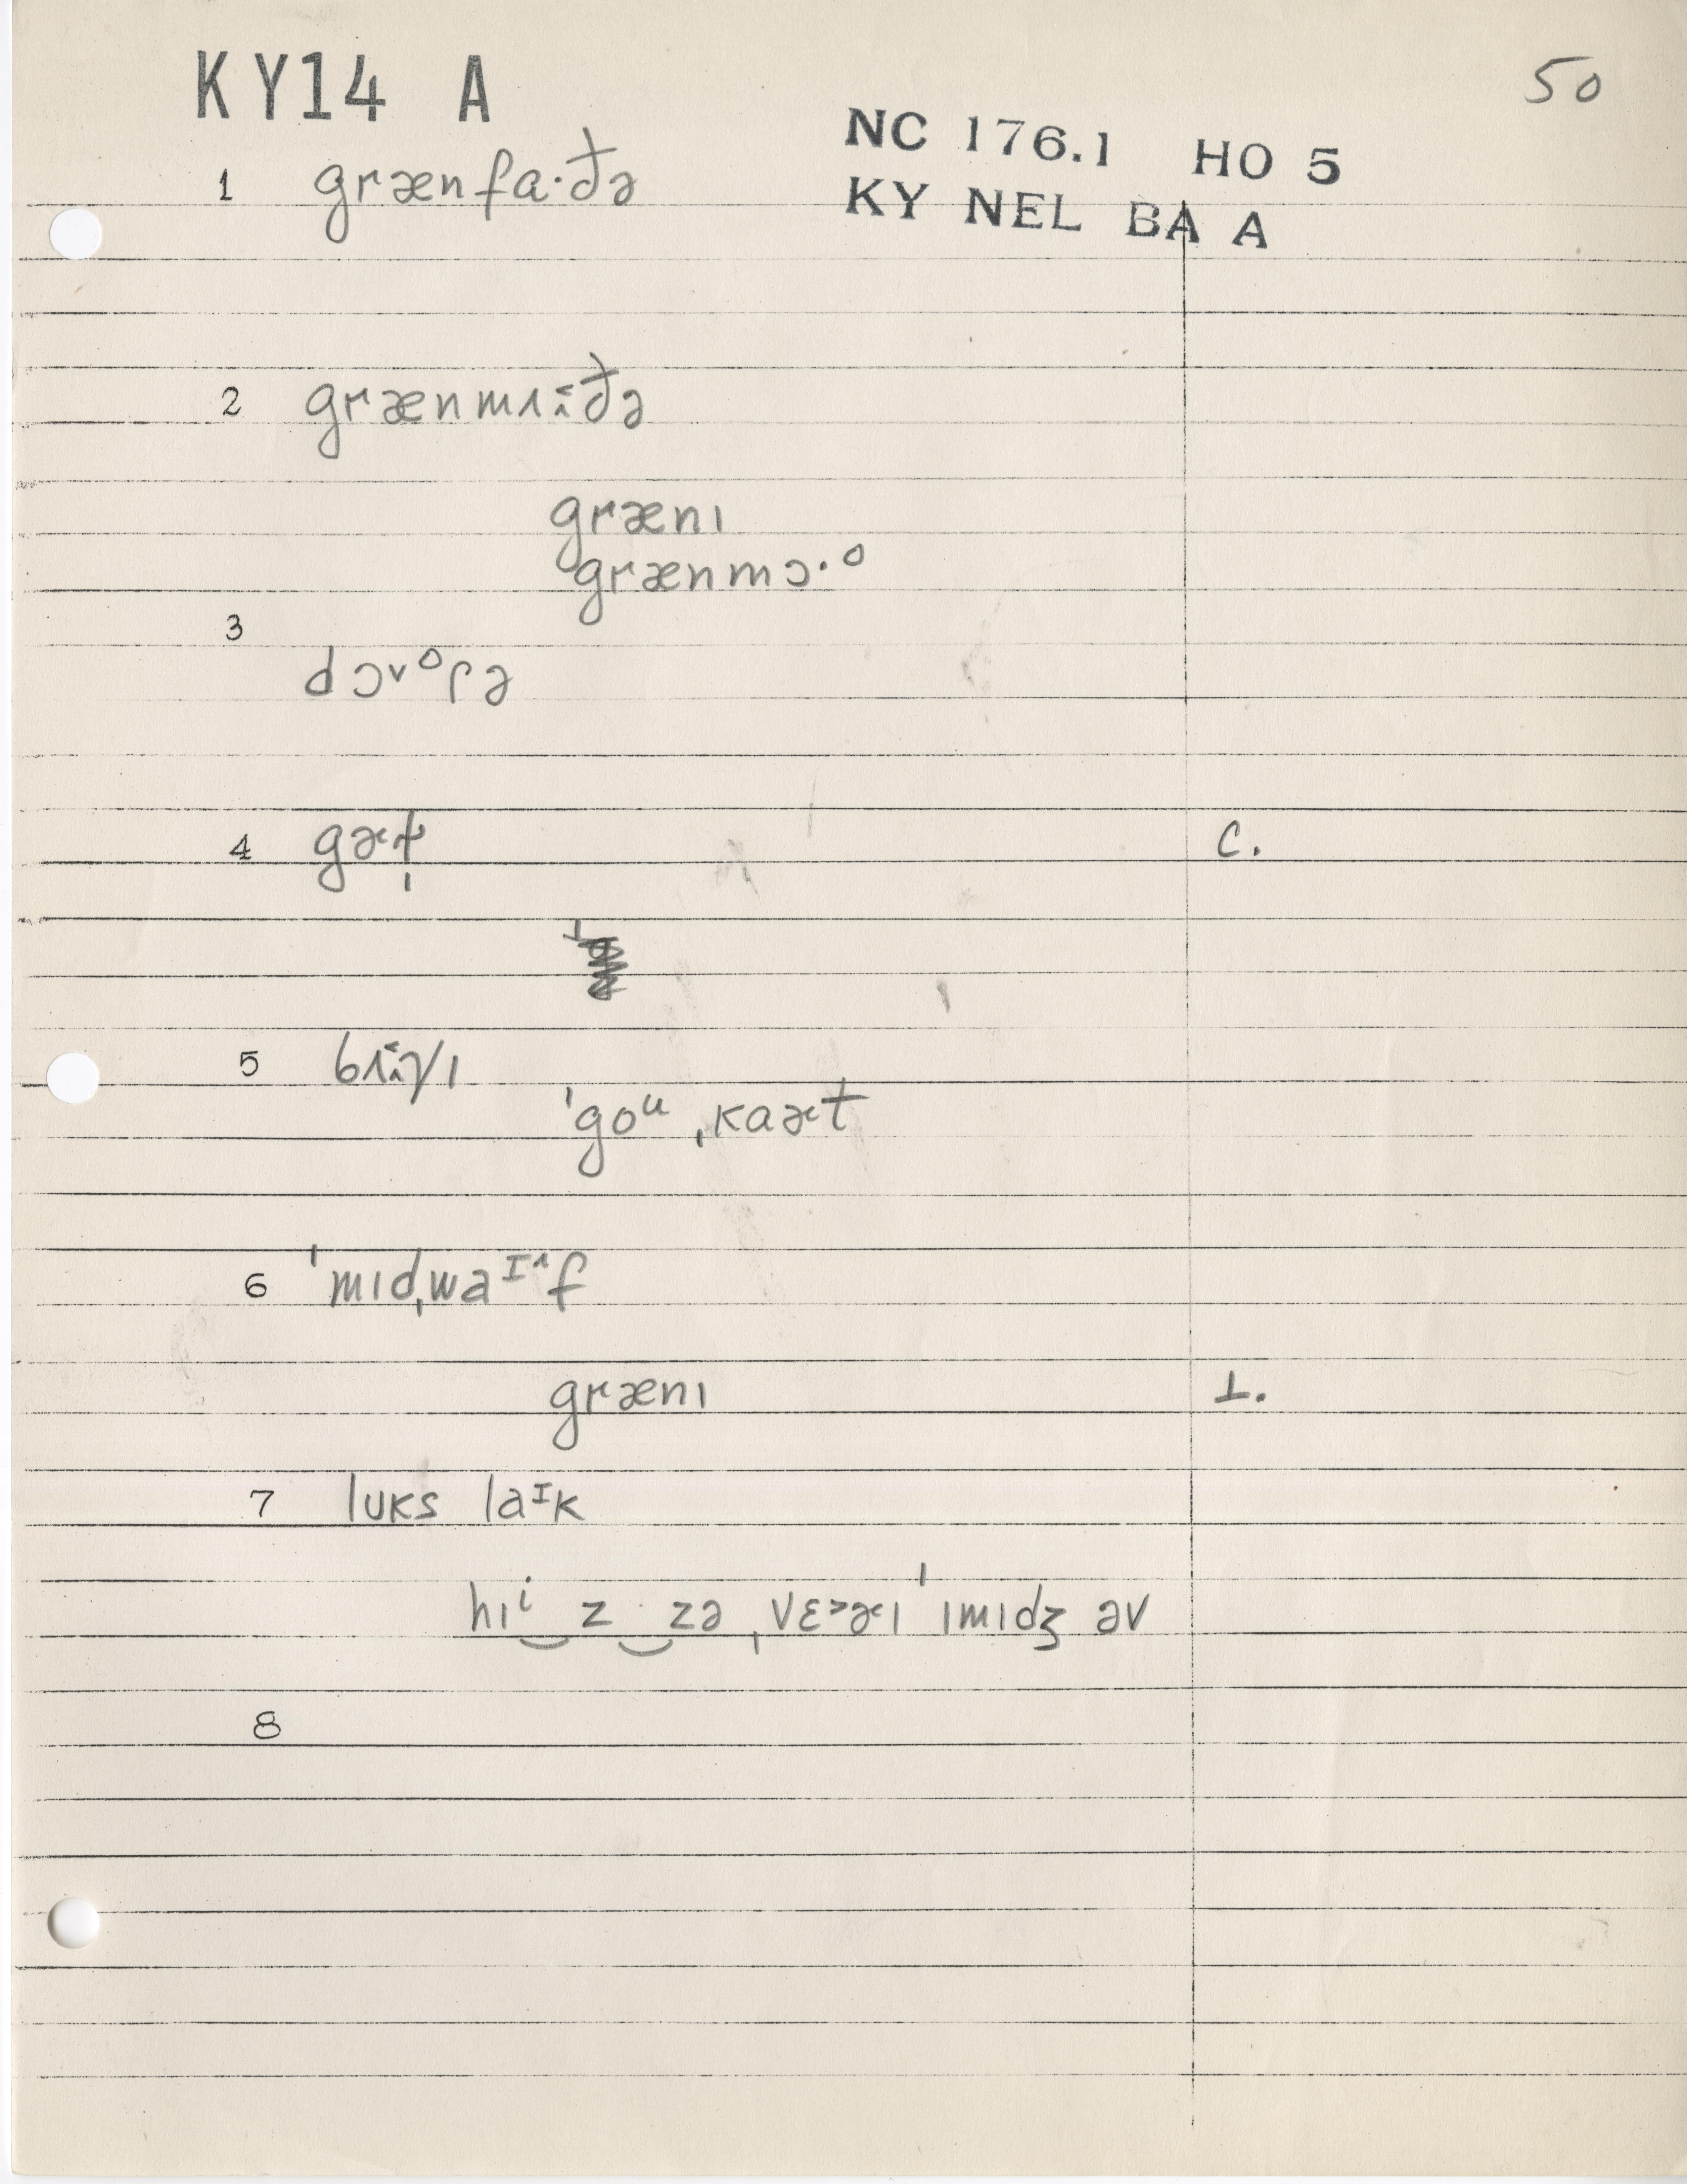 KY14 A
50
NC 176.1 HO 5
KY NEL BA A
1 grænfɑ·ðə
2 grænmʌ·ðə
græni
grænmɔ·ᵒ
3
dɔ˅ᵒɾə
4 C.
5
ˈgoᵘ ˌkɑɚt
6 ˈmɪdˌwaᴵ˄f
grænɪ ⊥.
7 lʊks laᴵk
hɪⁱ‿z‿zə ˌvɛ˃ɚɪ ˈɪmɪdʒ əv
8